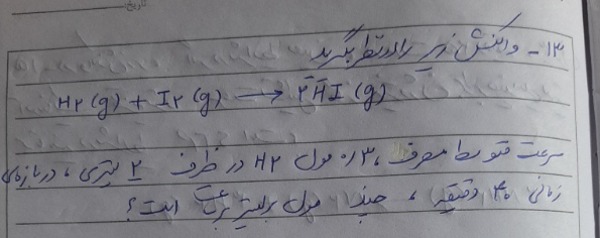 ۱۳- واکنش زیر را در نظر بگیرید
H۲(g) + I۲(g) → ۲HI(g)
سرعت متوسط مصرف ۰،۳ مول H۲ در ظرف ۲ لیتری، در بازه‌ی
زمانی ۴۰ دقیقه، چند مول بر لیتر بر ساعت است؟